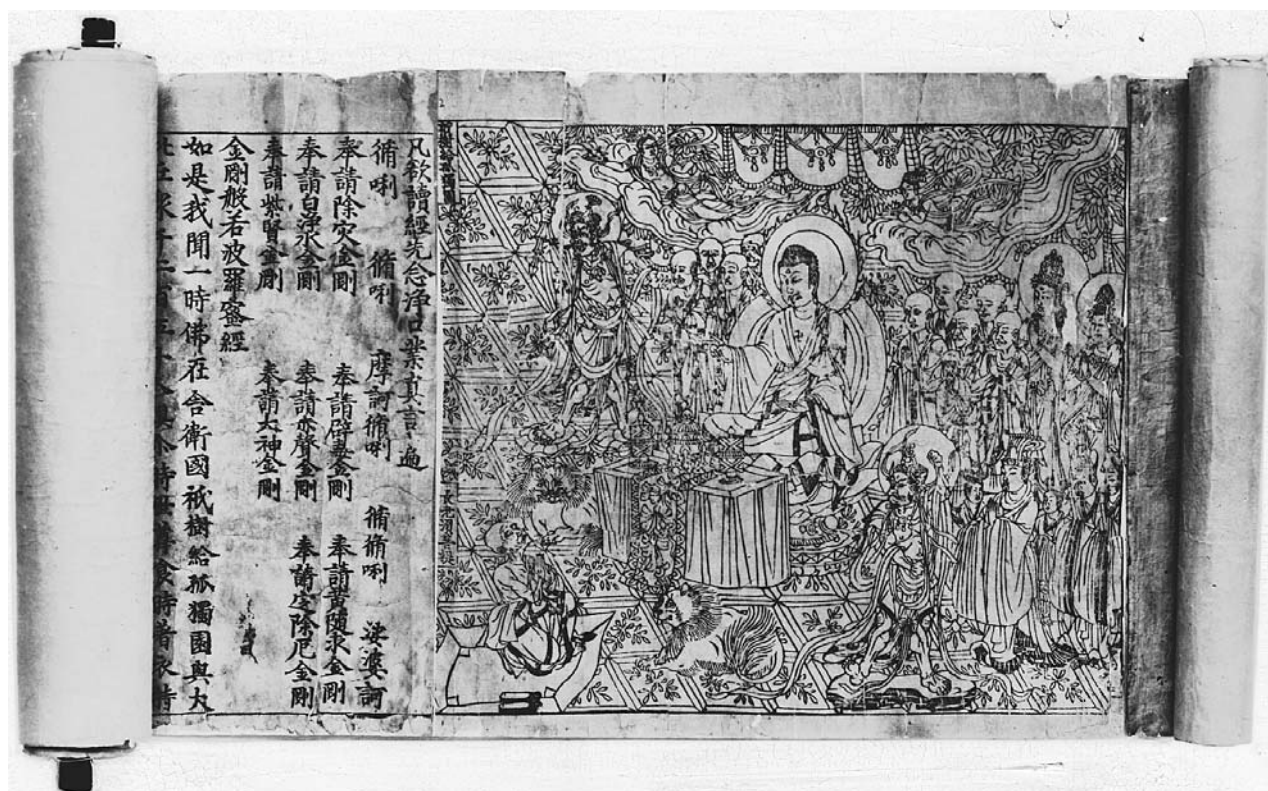 凡欲讀經先念淨口業真言一遍
脩唎 脩唎 摩訶脩唎 脩脩唎 娑婆訶
奉請除灾金剛 奉請辟毒金剛 奉請黃隨求金剛
奉請白淨水金剛 奉請赤聲金剛 奉請定除厄金剛
奉請紫賢金剛 奉請大神金剛
金剛般若波羅蜜經
如是我聞一時佛在舍衛國祇樹給孤獨園與大